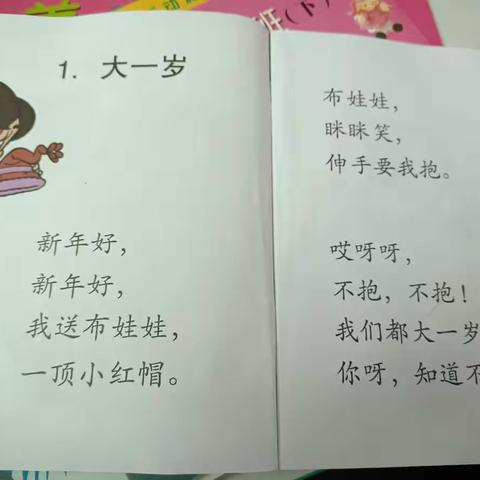 1. 大一岁
新年好，
新年好，
我送布娃娃，
一顶小红帽。
布娃娃，
眯眯笑，
伸手要我抱。
哎呀呀，
不抱，不抱！
我们都大一岁
你呀，知道不
班（下）